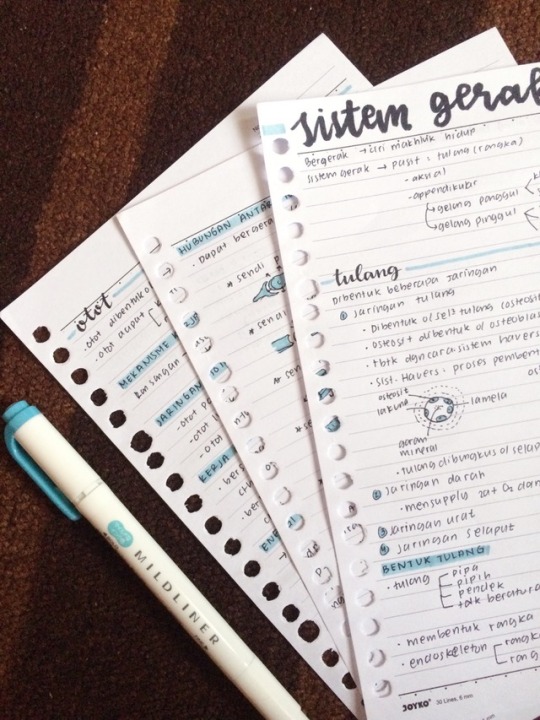 sistem gerak
Bergerak → ciri makhluk hidup
sistem gerak → pasif : tulang (rangka)
- aksial
- appendikular
gelang panggul
gelang pinggul
tulang
Dibentuk beberapa jaringan
① jaringan tulang
• Dibentuk o/ sel² tulang (osteosit
• osteosit dibentuk o/ osteoblas
• tbtk dgn cara sistem havers
• sist. Havers : proses pembent
osteosit
lakuna
lamela
garam
mineral
• Tulang dibungkus o/ selapu
② jaringan darah
• mensupply zat O₂ dan
③ jaringan urat
④ jaringan selaput
BENTUK TULANG
• tulang
pipa
pipih
pendek
tdk beratura
• membentuk rangka
• endoskeleton
rangka
rang
JOYKO 30 Lines, 6 mm
HUBUNGAN ANTAR
• Dapat bergera
* sendi p
* sendi
otot
• otot dibentuk o/
• otot dapat
MEKANISME
Ransangan
JARINGAN
• otot
• otot
• otot
KERJA
• bers
• ber
ENE
MILDLINER